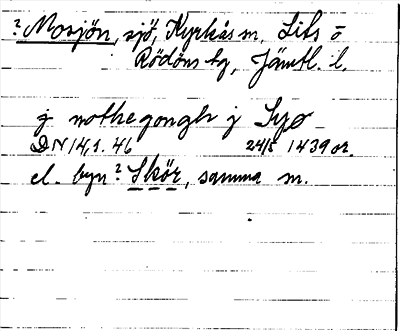 ? Mosjön, sjö, Kyrkås m, Lits o
Rödöns tg, Jämtl. l.
j nothegongh j Syø
DN 14,1. 46 24/5 1439 or.
el. byn? Skör, samma m.